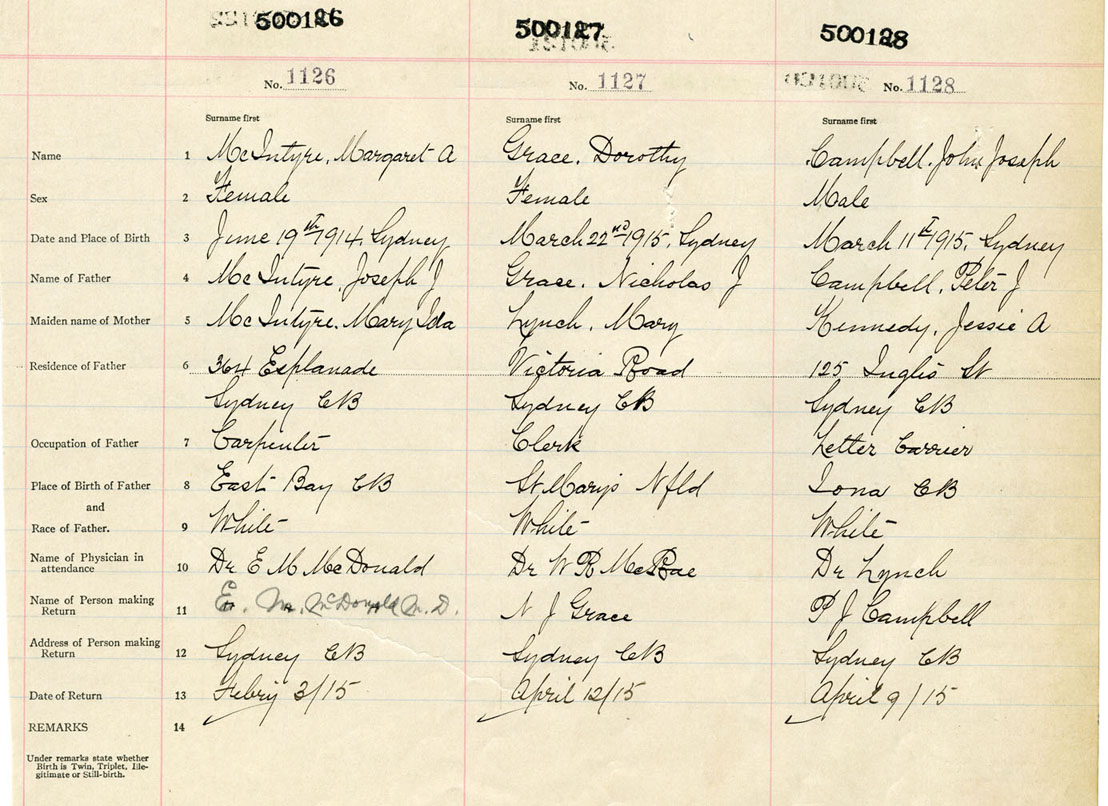 500126 500127 500128
No. 1126 No. 1127 No. 1128
Surname first Surname first Surname first
Name 1 McIntyre, Margaret A Grace, Dorothy Campbell, John Joseph
Sex 2 Female Female Male
Date and Place of Birth 3 June 19th 1914, Sydney March 22nd 1915, Sydney March 11th 1915, Sydney
Name of Father 4 McIntyre, Joseph J Grace, Nicholas J Campbell, Peter J
Maiden name of Mother 5 McIntyre, Mary Ida Lynch, Mary Kennedy, Jessie A
Residence of Father 6 364 Esplanade Victoria Road 125 Inglis St
Sydney CB Sydney CB Sydney CB
Occupation of Father 7 Carpenter Clerk Letter Carrier
Place of Birth of Father 8 East Bay CB St Mary's Nfld Iona CB
and
Race of Father. 9 White White White
Name of Physician in
attendance 10 Dr E M McDonald Dr W R McRae Dr Lynch
Name of Person making
Return 11 E. M. McDonald M.D. N J Grace P J Campbell
Address of Person making
Return 12 Sydney CB Sydney CB Sydney CB
Date of Return 13 Febry 3/15 April 12/15 April 9/15
REMARKS 14
Under remarks state whether
Birth is Twin, Triplet, Ille-
gitimate or Still-birth.